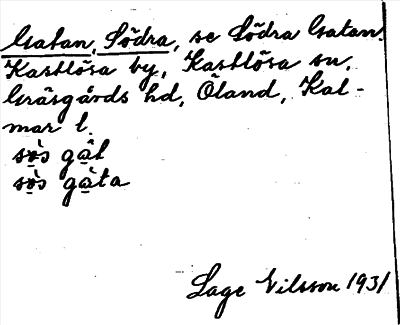 Gatan, Södra, se Södra Gatan.
Kastlösa by, Kastlösa sn,
Gräsgårds hd, Öland, Kal-
mar l.
sø̀s gat
sø̀s gàta
Lage Nilsson 1931